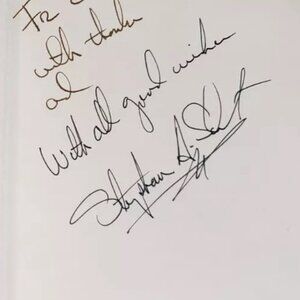 For
with thanks
and
With all good wishes
Stephen